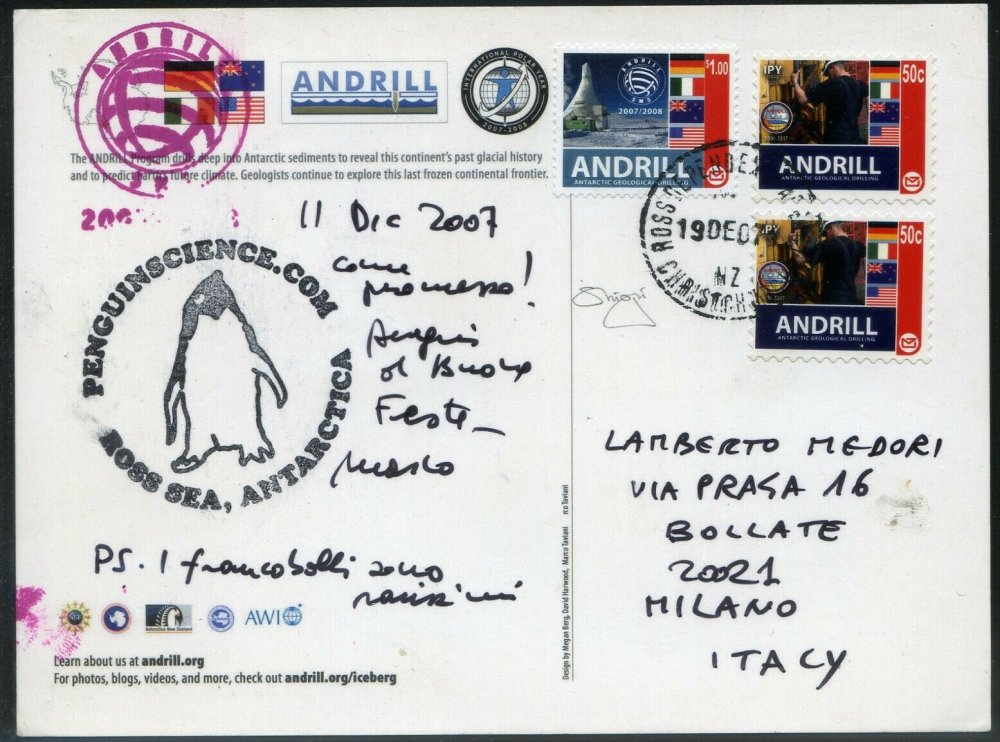 ANDRILL
SMS
ANDRILL
INTERNATIONAL POLAR YEAR
2007-2008
The ANDRILL Program drills deep into Antarctic sediments to reveal this continent's past glacial history
and to predict Earth's future climate. Geologists continue to explore this last frozen continental frontier.
11 Dic 2007
come
promesso!
Auguri
di Buone
Feste
Marco
PS. I francobolli sono
rarissimi
PENGUINSCIENCE.COM
ROSS SEA, ANTARCTICA
AWI
Learn about us at andrill.org
For photos, blogs, videos, and more, check out andrill.org/iceberg
Design by Megan Berg, David Harwood, Marco Taviani
rco Taviani
ANDRILL
SMS
2007/2008
$1.00
ANDRILL
ANTARCTIC GEOLOGICAL DRILLING
IPY
50c
ANDRILL
ANTARCTIC GEOLOGICAL DRILLING
IPY
50c
ANDRILL
ANTARCTIC GEOLOGICAL DRILLING
ROSS DEPENDENCY
19DE0
NZ
CHRISTCH
LAMBERTO MEDORI
VIA PRAGA 16
BOLLATE
20021
MILANO
ITALY